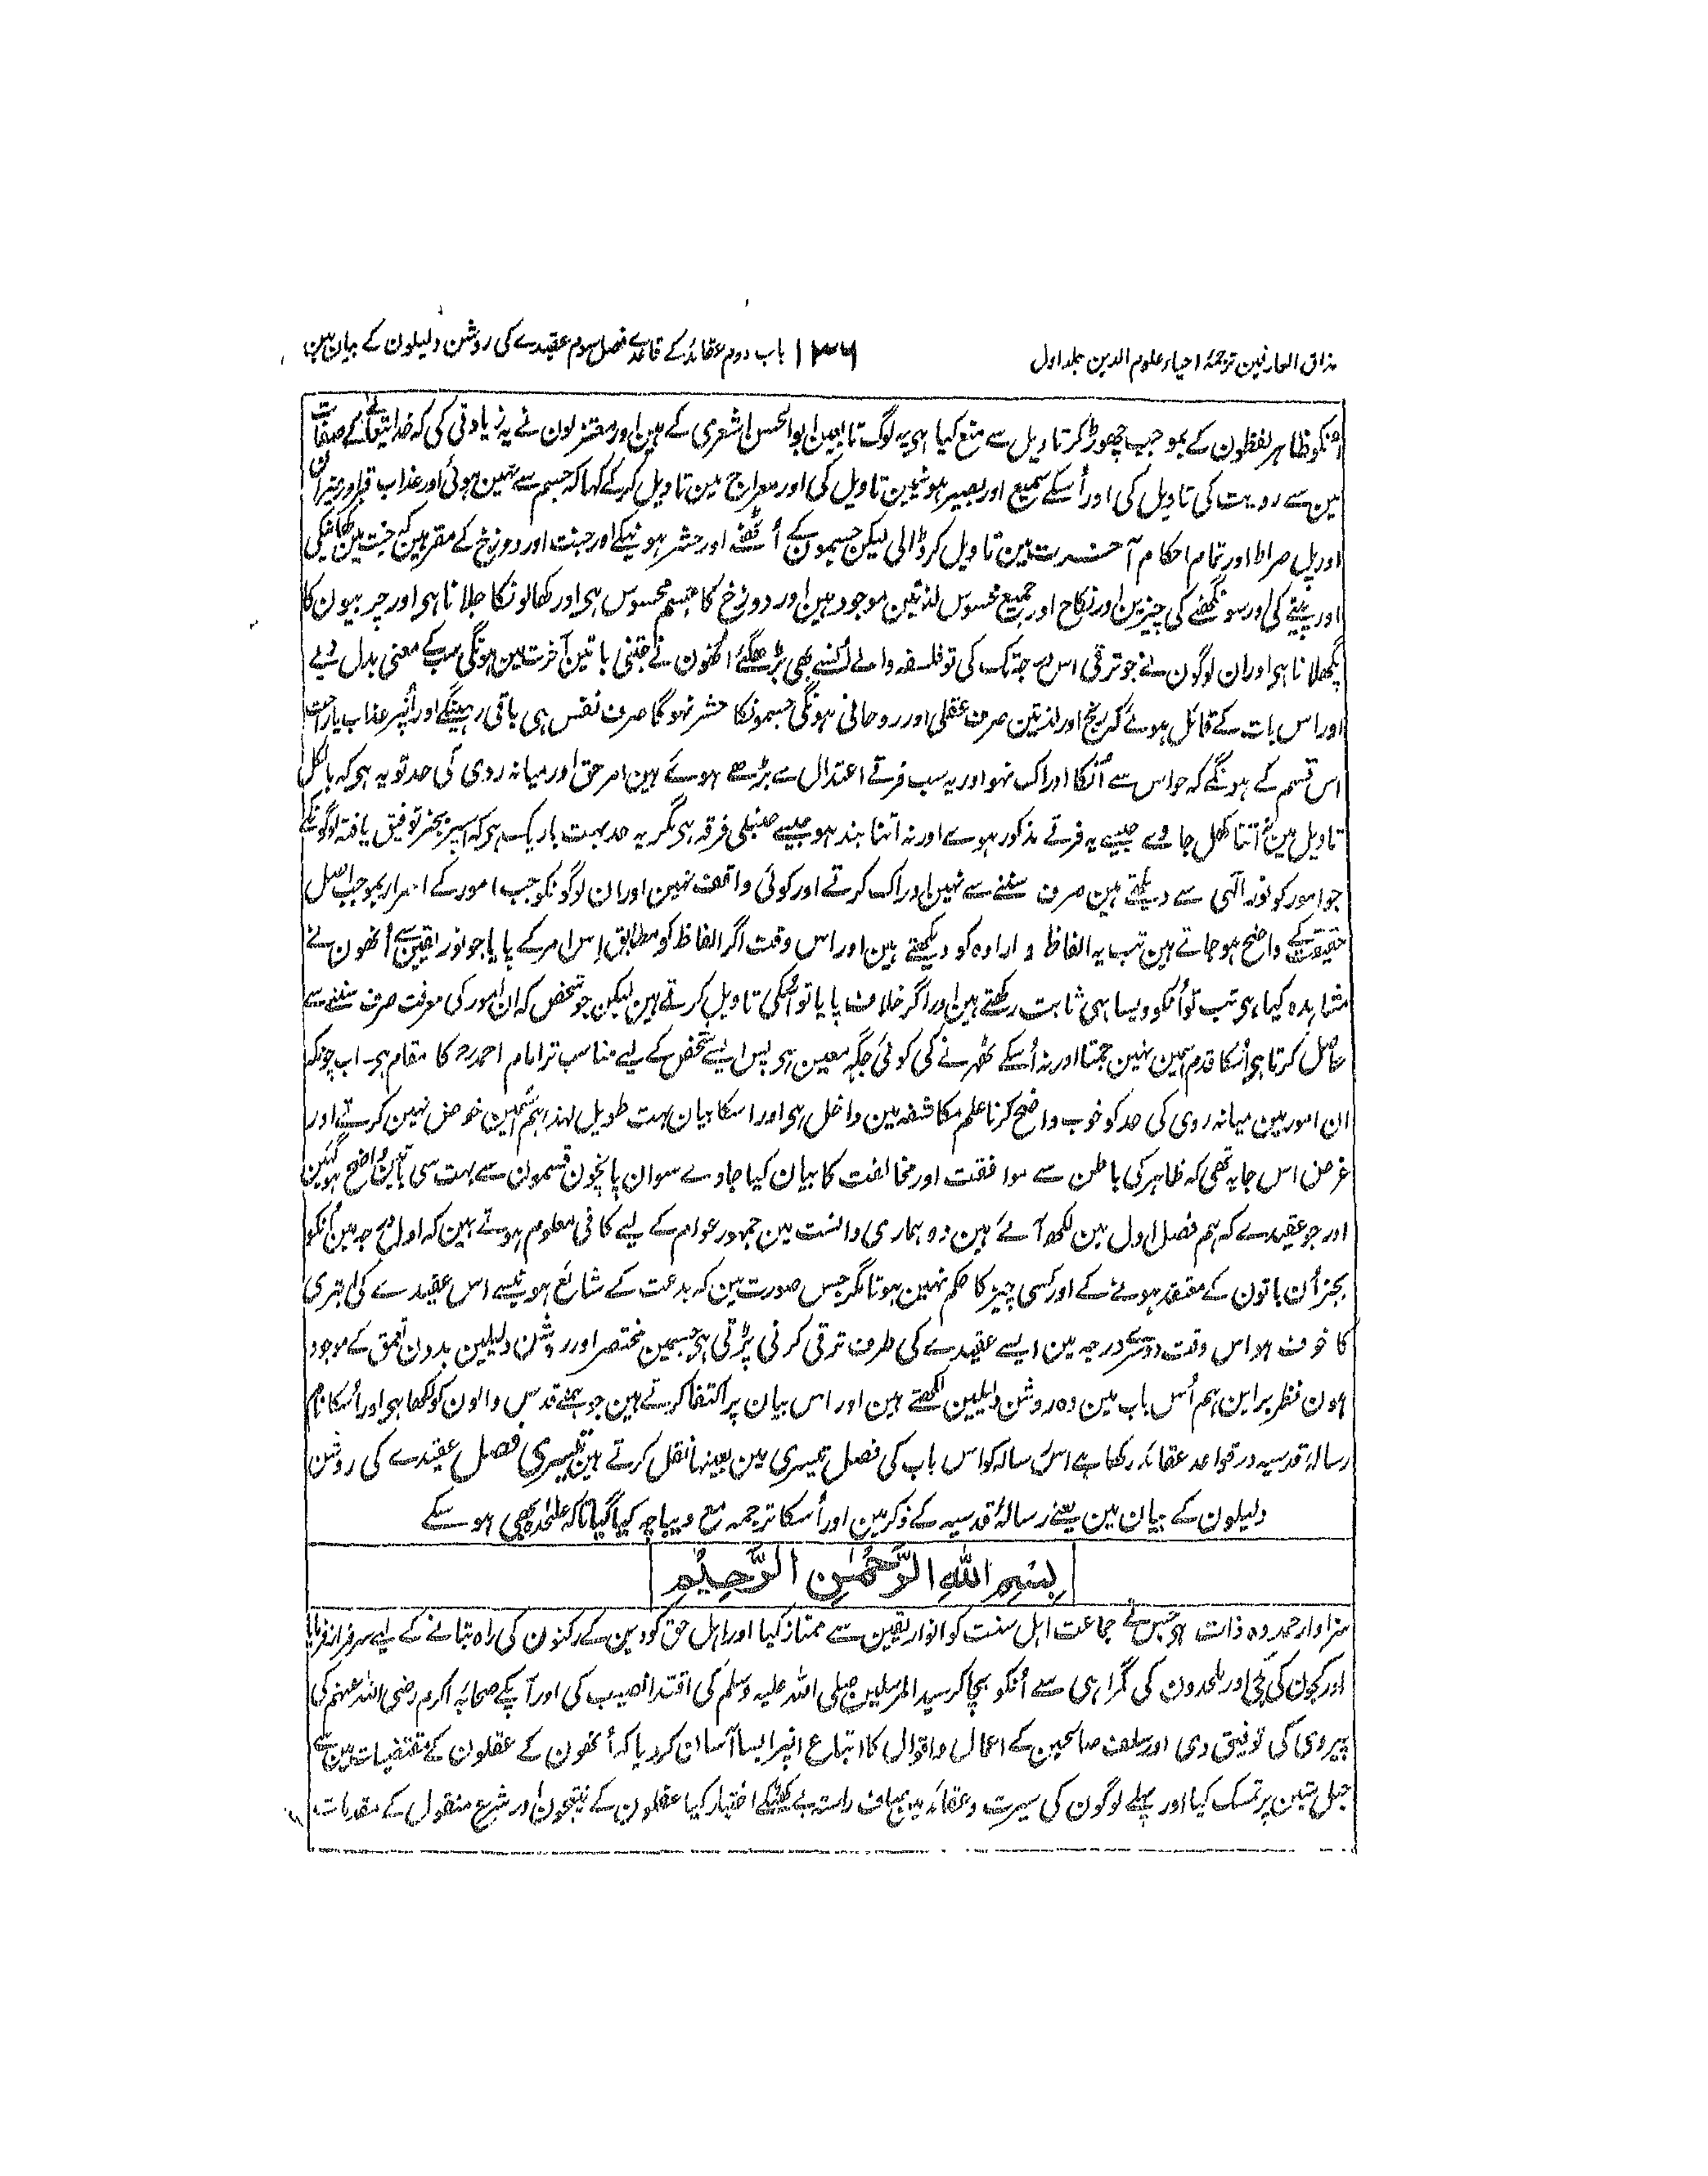 مذاق العارفین ترجمۂ احیاء علوم الدین جلد اول
۱۳۶
باب دوم عقائد کے قاعدے فصل سوم عقیدے کی روشن دلیلون کے بیان مین
انکو ظاہر لفظون کے بموجب چھوڑ کر تاویل سے منع کیا ہی یہ لوگ تابعین ابو الحسن اشعری کے ہین اور معتزلون نے یہ زیادتی کی کہ خدا تعالے کے صفات
مین سے رویت کی تاویل کی اور اُسکے سمیع اور بصیر ہونیمین تاویل کی اور معراج مین تاویل کر کے کہا کہ جسم سے نہین ہوئی اور عذاب قبر اور میزان
اور پل صراط اور تمام احکام آخرت مین تاویل کر ڈالی لیکن جسمون کے اُٹھنے اور حشر ہونیکے اور جنت اور دوزخ کے مقر ہین کہ جنت مین کھانیکی
اور پینے کی اور سونگھنے کی چیزین اور نکاح اور جمیع محسوس لذتین موجود ہین اور دوزخ کا جسم محسوس ہی اور کھالونکا جلانا ہی اور چربیون کا
پگھلانا ہی اور ان لوگون نے جو ترقی اس درجہ تک کی تو فلسفہ والے اُنسے بھی بڑھ گئے اُنھون نے جتنی باتین آخرت مین ہونگی سب کے معنی بدل دیے
اور اس بات کے قائل ہوئے کہ رنج اور لذتین صرف عقلی اور روحانی ہونگی جسمونکا حشر نہوگا صرف نفس ہی باقی رہینگے اور اُنپر عذاب یا راحت
اس قسم کے ہونگے کہ حواس سے اُنکا ادراک نہو اور یہ سب فرقے اعتدال سے بڑھے ہوئے ہین امر حق اور میانہ روی کی حد تو یہ ہی کہ بالکل
تاویل مین نہ اتنا کھل جاوے جیسے یہ فرقے مذکور ہوے اور نہ اتنا بند ہو جیسے حنبلی فرقہ ہی مگر یہ حد بہت باریک ہی کہ اسپر بجز توفیق یافتہ لوگونکے
جو امور کو نور الٰہی سے دیکھتے ہین صرف سننے سے نہین ادراک کرتے اور کوئی واقف نہین اور ان لوگونکو جب امور کے اسرار بموجب اصل
حقیقت کے واضح ہو جاتے ہین تب یہ الفاظ و ارادہ کو دیکھتے ہین اور اس وقت اگر الفاظ کو مطابق اِس امر کے پایا جو نور یقین سے اُنھون نے
مشاہدہ کیا ہی تب تو اُنکو ویسا ہی ثابت رکھتے ہین اور اگر خلاف پایا تو اُسکی تاویل کرتے ہین لیکن جو شخص کہ ان امور کی معرفت صرف سننے سے
حاصل کرتا ہی اُسکا قدم اسمین نہین جمتا اور نہ اُسکے ٹھہرنے کی کوئی جگہ معین ہی پس ایسے شخص کے لیے مناسب تر امام احمدؒ کا مقام ہی ۔ اب چونکہ
ان امور مین میانہ روی کی حد کو خوب واضح کرنا علم مکاشفہ مین داخل ہی اور اسکا بیان بہت طویل لہذا ہم اُسمین خوض نہین کرتے اور
غرض اس جا یہ تھی کہ ظاہر کی باطن سے موافقت اور مخالفت کا بیان کیا جاوے سو ان پانچون قسمون سے بہت سی باتین واضح ہو گئین
اور جو عقیدے کہ ہم فصل اول مین لکھ آئے ہین وہ ہماری دانست مین جمہور عوام کے لیے کافی معلوم ہوتے ہین کہ اول درجہ مین اُنکو
بجز اُن باتون کے معتقد ہونے کے اور کسی چیز کا حکم نہین ہوتا مگر جس صورت مین کہ بدعت کے شائع ہونیسے اس عقیدے کی ابتری
کا خوف ہو اس وقت دوسرے درجہ مین ایسے عقیدے کی طرف ترقی کرنی پڑتی ہی جسمین مختصر اور روشن دلیلین بدون تعمق کے موجود
ہون نظر براین ہم اُس باب مین وہ روشن دلیلین لکھتے ہین اور اس بیان پر اکتفا کرتے ہین جو ہمنے قدس والون کو لکھا ہی اور اُسکا نام
رسالۂ قدسیہ در قواعد عقائد رکھا ہے اس رسالہ کو اس باب کی فصل تیسری مین بعینہا نقل کرتے ہین تیسری فصل عقیدے کی روشن
دلیلون کے بیان مین یعنے رسالۂ قدسیہ کے ذکر مین اور اُسکا ترجمہ مع دیباچہ کیا گیا تاکہ علٰحدہ بھی ہو سکے
بِسْمِ اللّٰهِ الرَّحْمٰنِ الرَّحِيْمِ
سزاوار حمد وہ ذات ہی جس نے جماعت اہل سنت کو انوار یقین سے ممتاز کیا اور اہل حق کو دین کے رکنون کی راہ بتانے کے لیے سرفراز فرمایا
اور کجون کی کجی اور ملحدون کی گمراہی سے اُنکو بچا کر سید المرسلین صلی اللہ علیہ وسلم کی اقتدا نصیب کی اور آپکے صحابۂ اکرم رضی اللہ عنہم کی
پیروی کی توفیق دی اور سلف صالحین کے اعمال و اقوال کا اتباع اُنپر ایسا آسان کر دیا کہ اُنھون کے عقلون کے مقتضیات مین سے
حبل متین پر تمسک کیا اور پہلے لوگون کی سیرت و عقائد مین صاف راستہ بے کھٹکے اختیار کیا عقلون کے نتیجون اور شرع منقول کے مقدمات